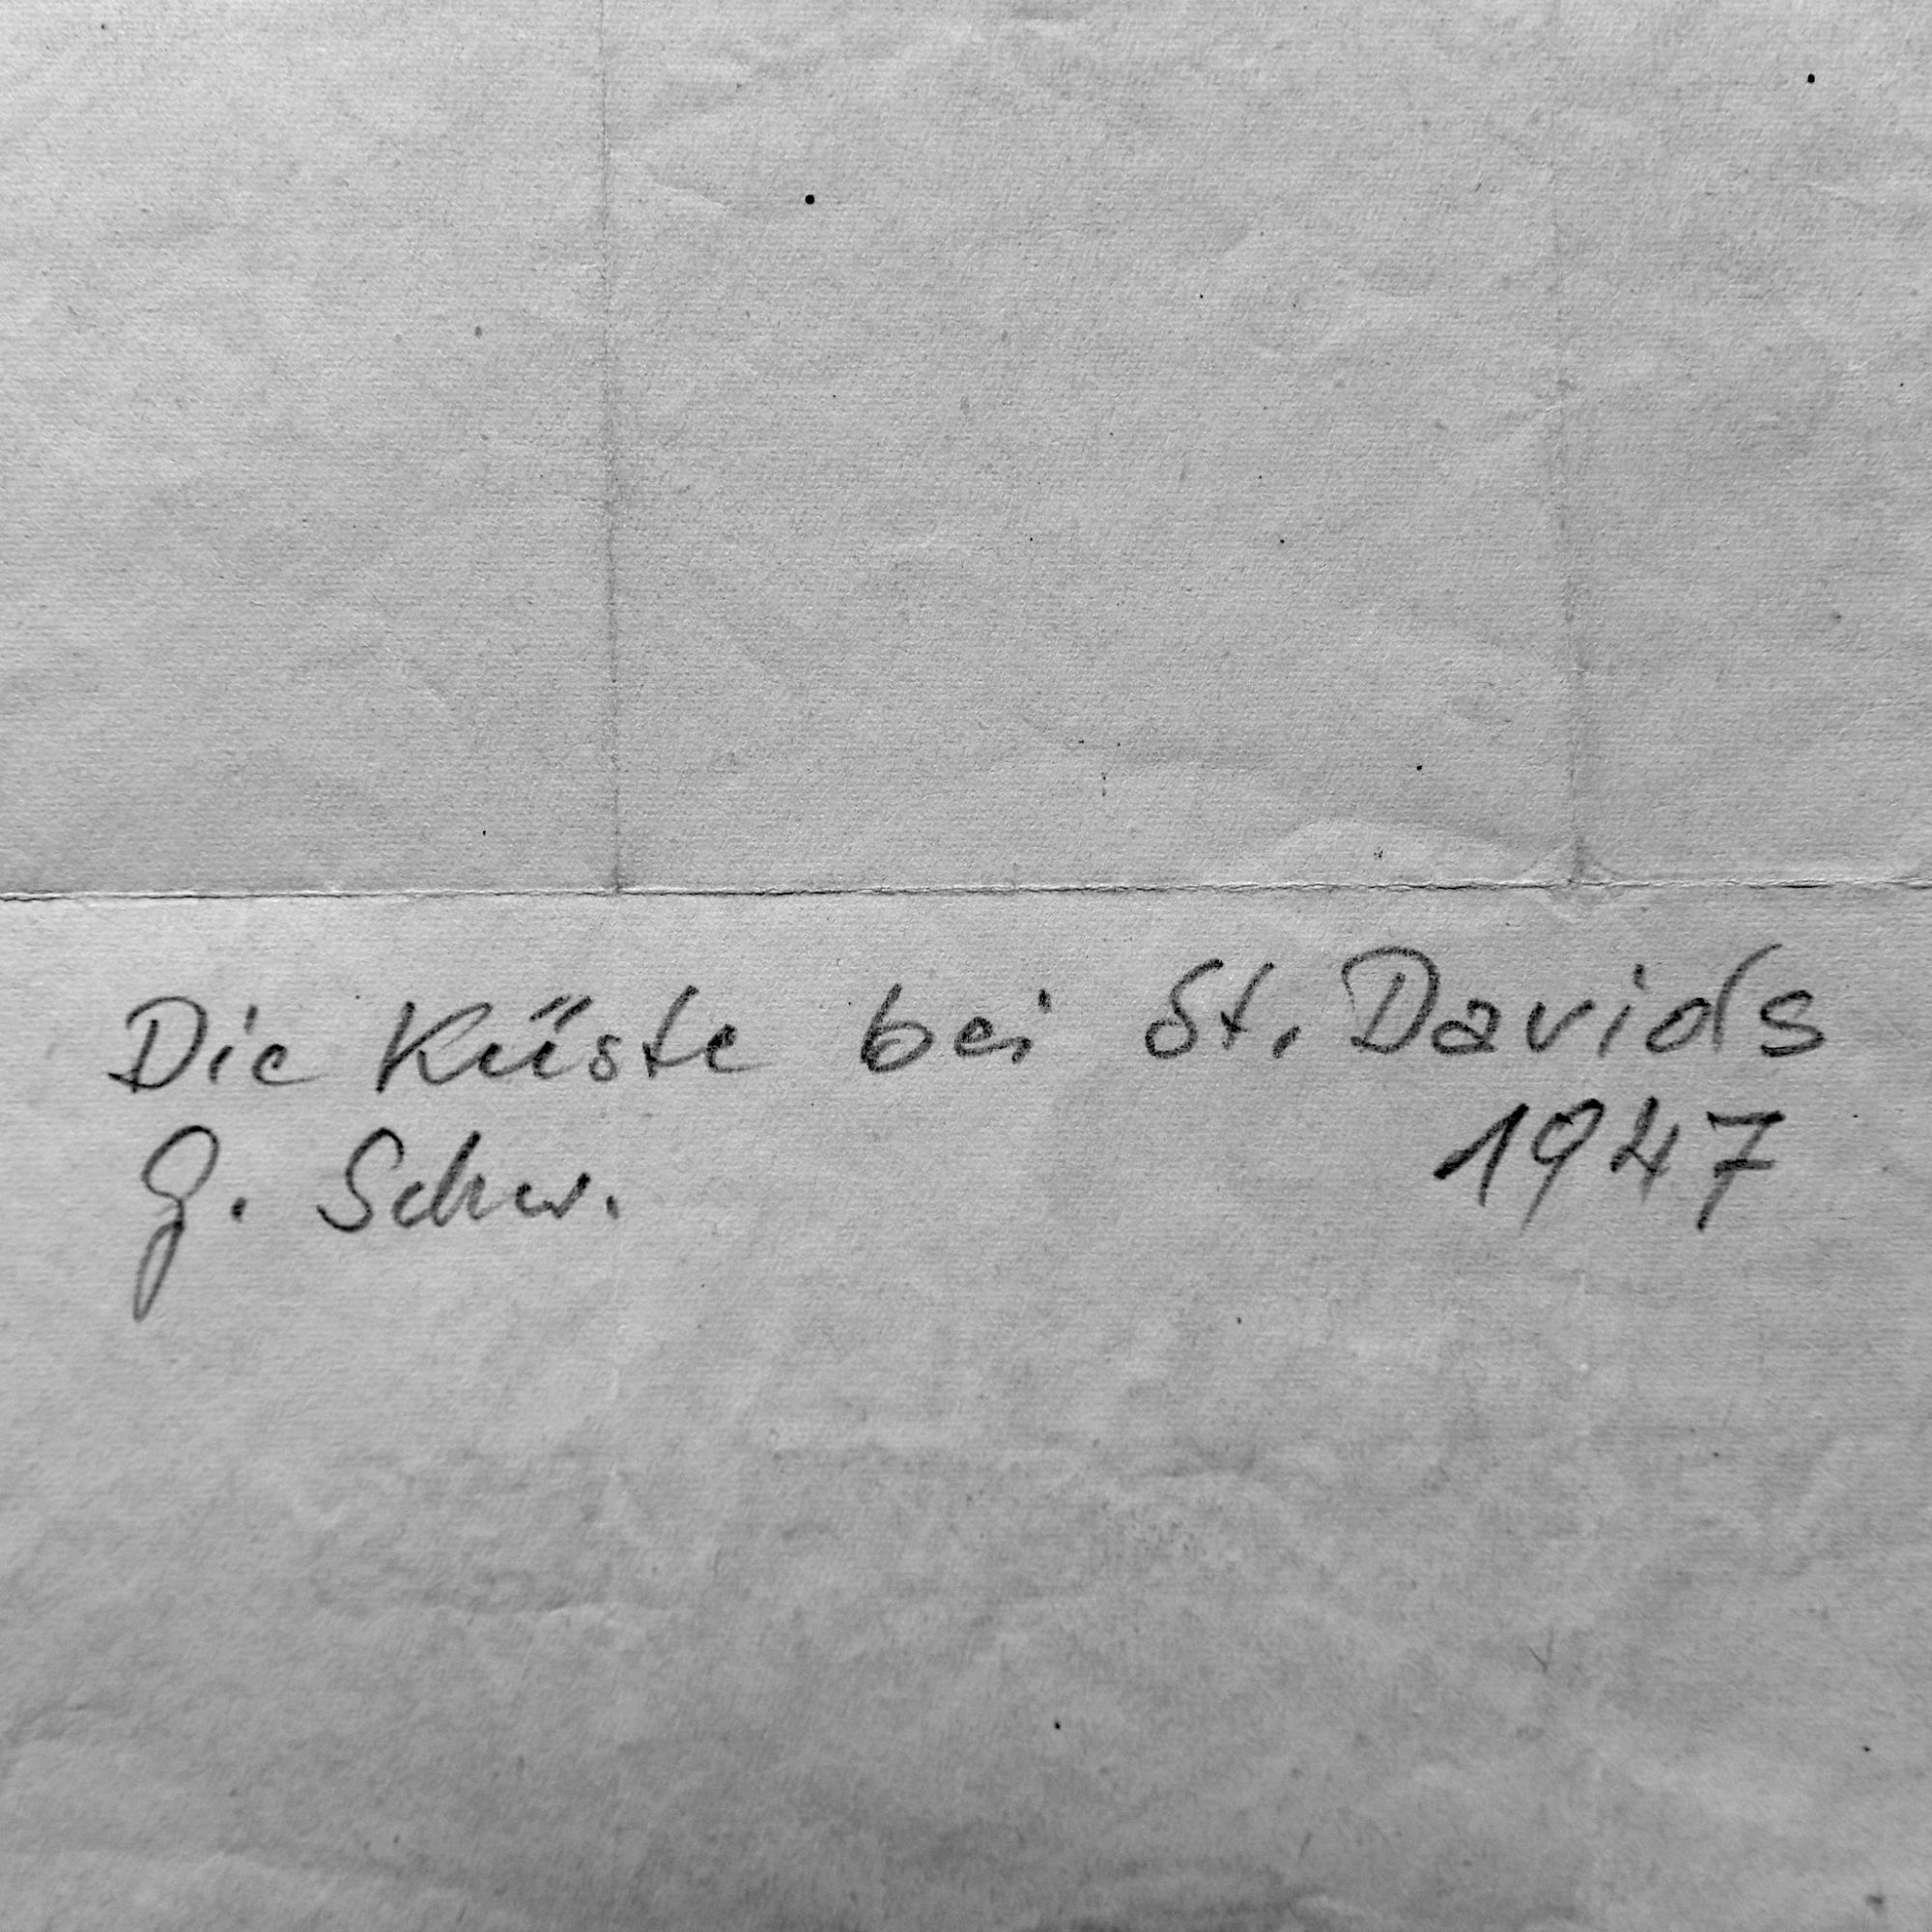 Die Küste bei St. Davids
G. Schw. 1947